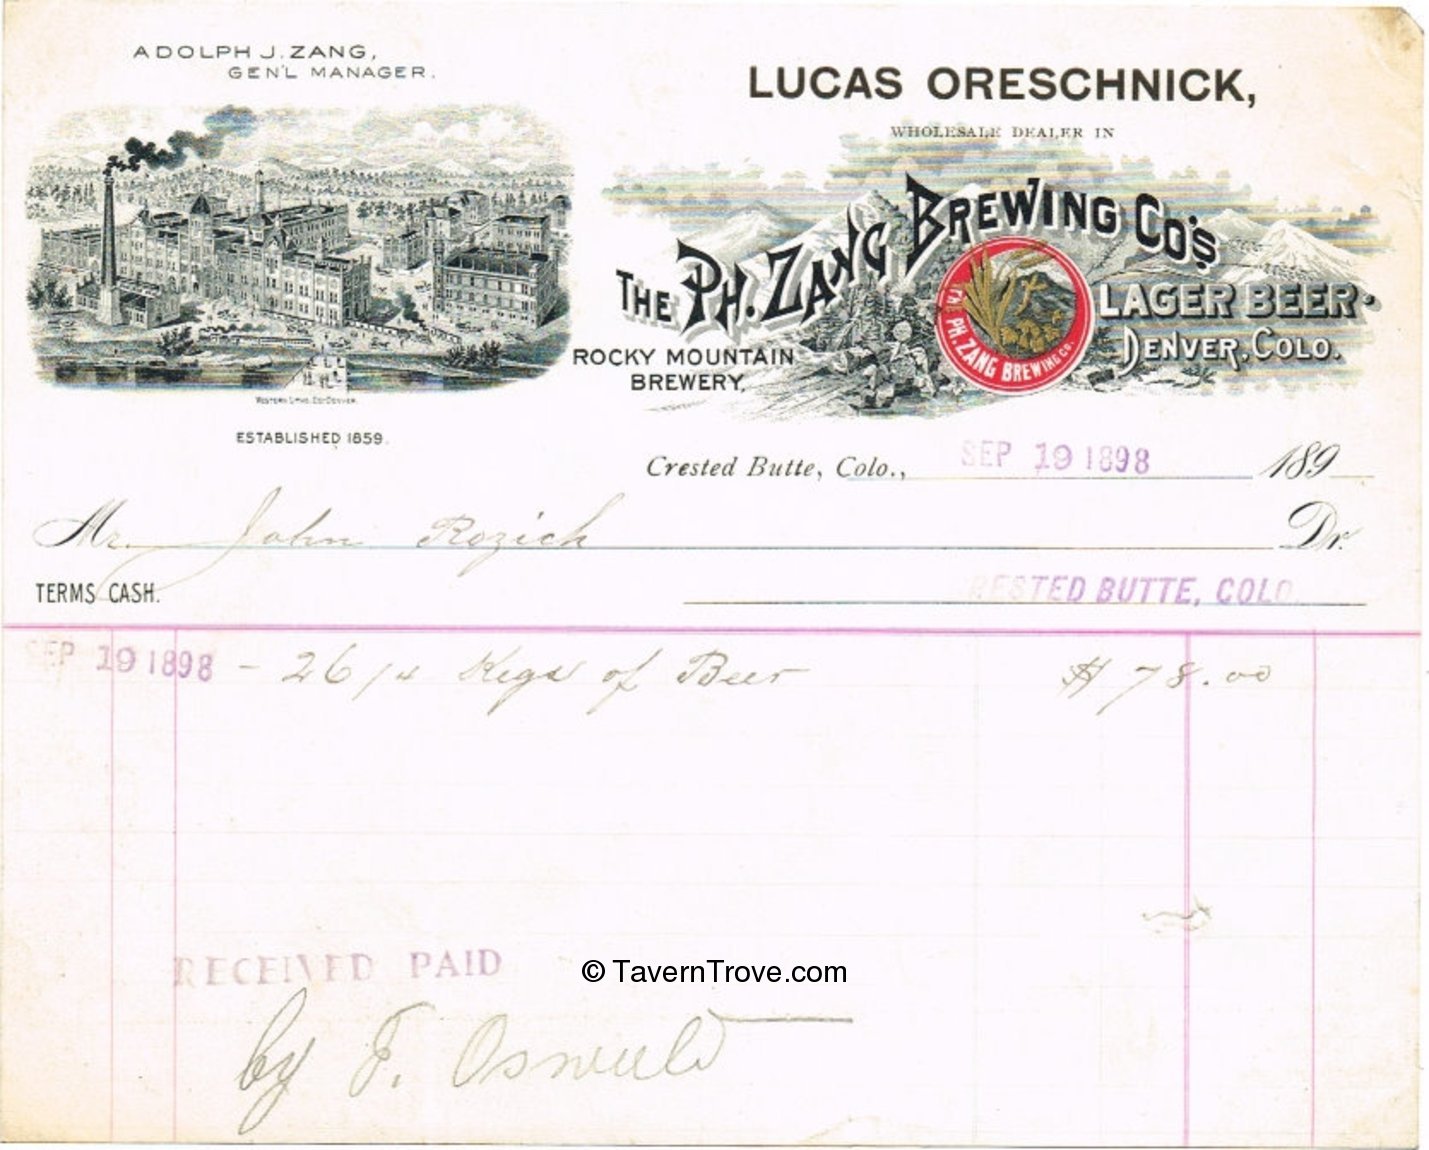 ADOLPH J. ZANG,
GEN'L MANAGER.
LUCAS ORESCHNICK,
WHOLESALE DEALER IN
THE PH. ZANG BREWING CO'S
LAGER BEER.
DENVER, COLO.
THE PH. ZANG BREWING CO.
ROCKY MOUNTAIN
BREWERY,
WESTERN LITHO. CO. DENVER.
ESTABLISHED 1859.
Crested Butte, Colo., SEP 19 1898 189
Mr. John Rozich Dr.
TERMS CASH.
RESTED BUTTE, COLO.
SEP 19 1898 - 26 1/4 Kegs of Beer $78.00
RECEIVED PAID
© TavernTrove.com
by F. Oswald